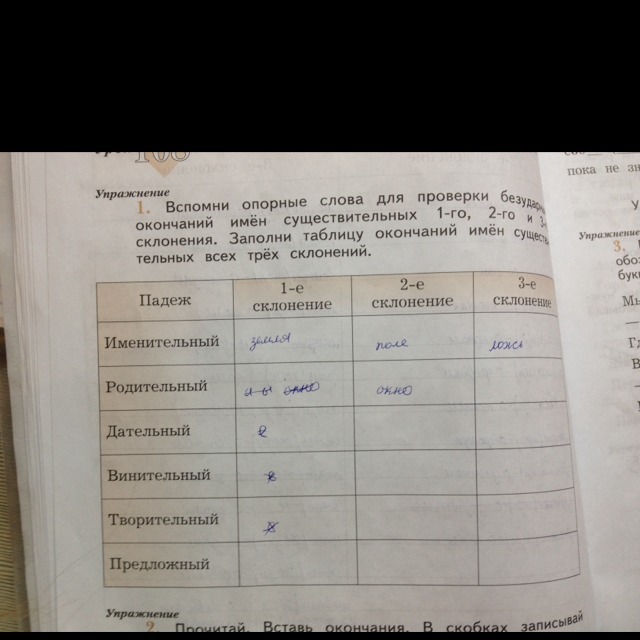 108
Упражнение
1. Вспомни опорные слова для проверки
окончаний имён существительных 1-го, 2-го и
склонения. Заполни таблицу окончаний имён
тельных всех трёх склонений.
Падеж 1-е склонение 2-е склонение 3-е склонение
Именительный земля поле
Родительный и ы окно окно
Дательный е
Винительный
Творительный
Предложный
Упражнение
2. Прочитай. Вставь окончания. В скобках записывай
пока не
У
Упражнение
3.
Мы